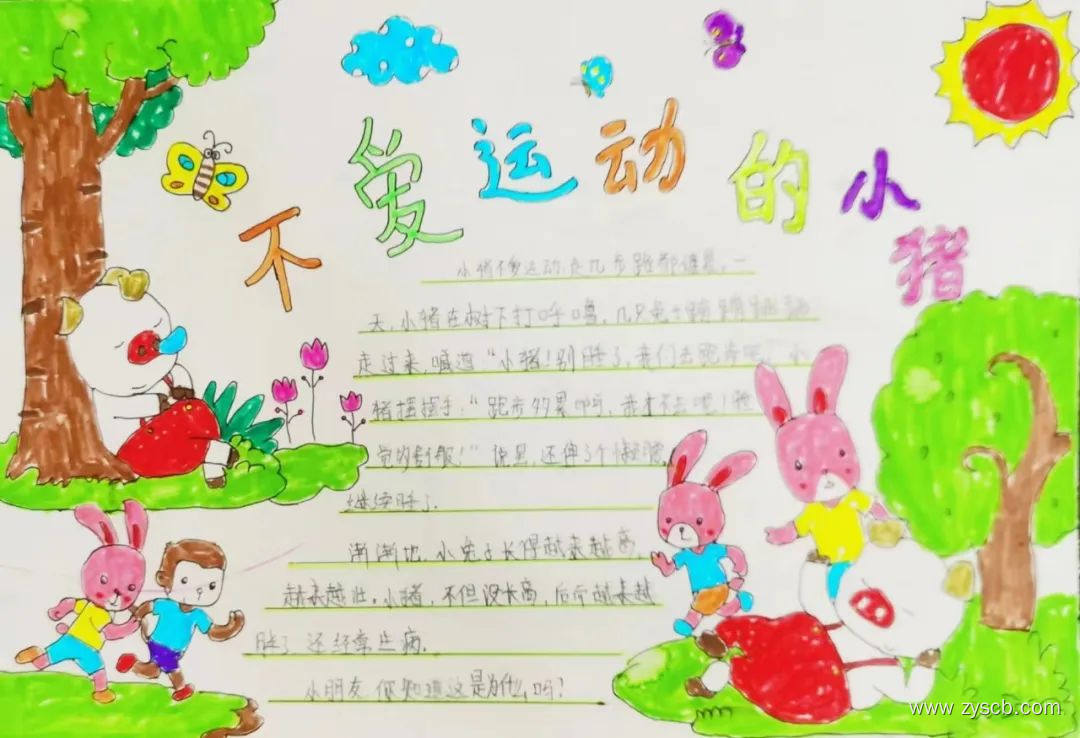 不爱运动的小猪
小猪不爱运动,走几步路都很累。一
天,小猪在树下打呼噜,几只兔子蹦蹦跳跳
走过来,喊道“小猪!别睡了,我们去跑步吧。”小
猪摇摇手:“跑步多累呀,我才不去呢!睡
觉的舒服!”说完,还伸了个懒腰,
继续睡了.
渐渐地,小兔子长得越来越高,
越来越壮。小猪,不但没长高,后而越来越
胖了,还经常生病.
小朋友你知道这是为什么吗?
www.zyscb.com